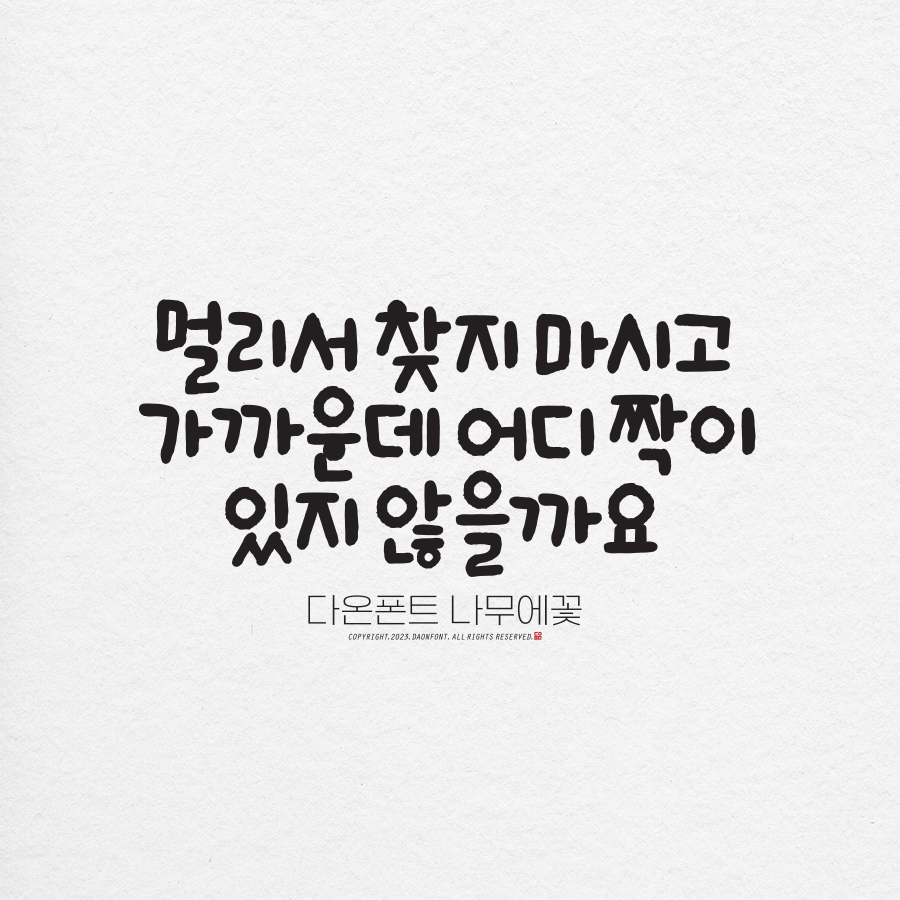 멀리서 찾지 마시고
가까운데 어디 짝이
있지 않을까요
다온폰트 나무에꽃
COPYRIGHT.2023. DAONFONT. ALL RIGHTS RESERVED.